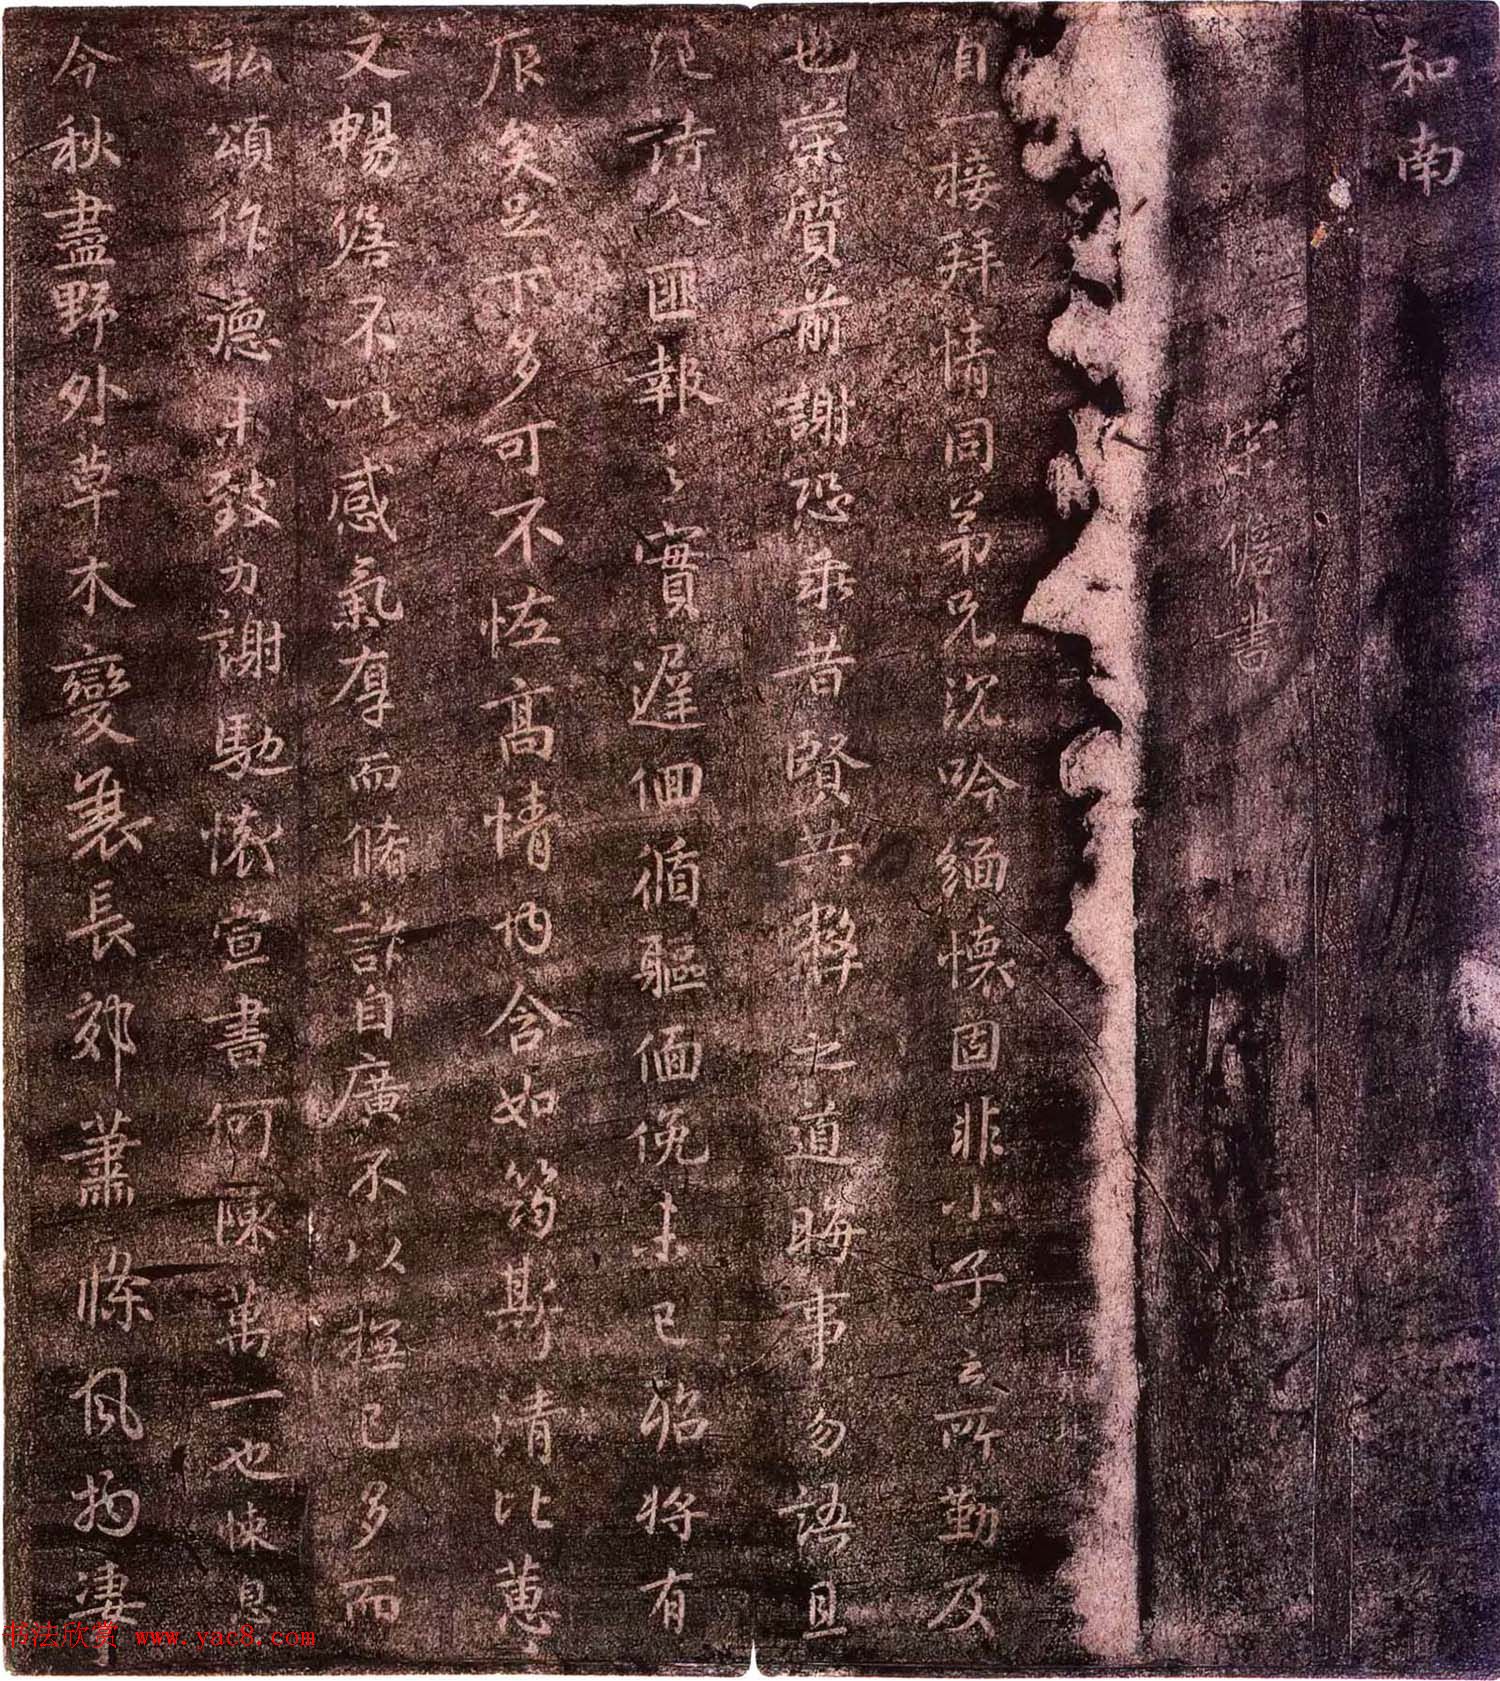 和南
宋儋書
自一接拜情同弟兄沉吟緬懷固非小子之所勤及
也蒙質前謝恐乖昔賢共弊之道晦事勿語且
詩人匪報之實遲回循軀僶俛未已貽將有
辰矣足下多可不恠高情內含如筠斯清比蕙
又暢儋不以感氣厚而脩詐自廣不以撫己多而
私頌作德未致力謝馳懷宣書何陳萬一也悚息
今秋盡野外草木變衰長郊蕭條風物淒
书法欣赏 www.yac8.com